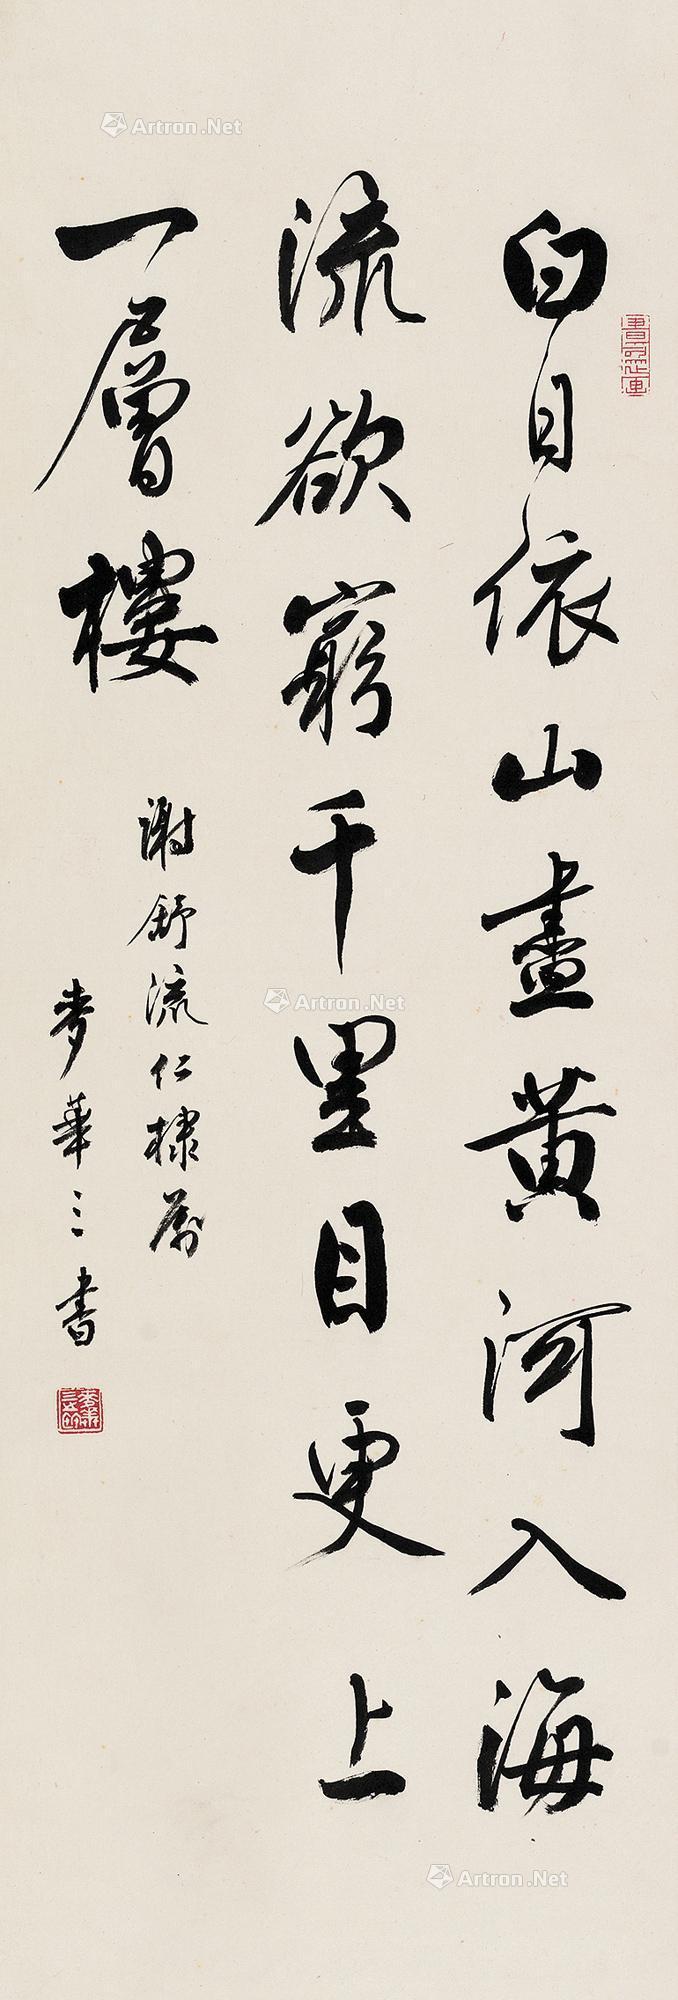 白日依山盡黃河入海
流欲窮千里目更上
一層樓
謝舒流仁棣屬
麥華三書
Artron.Net
Artron.Net
Artron.Net